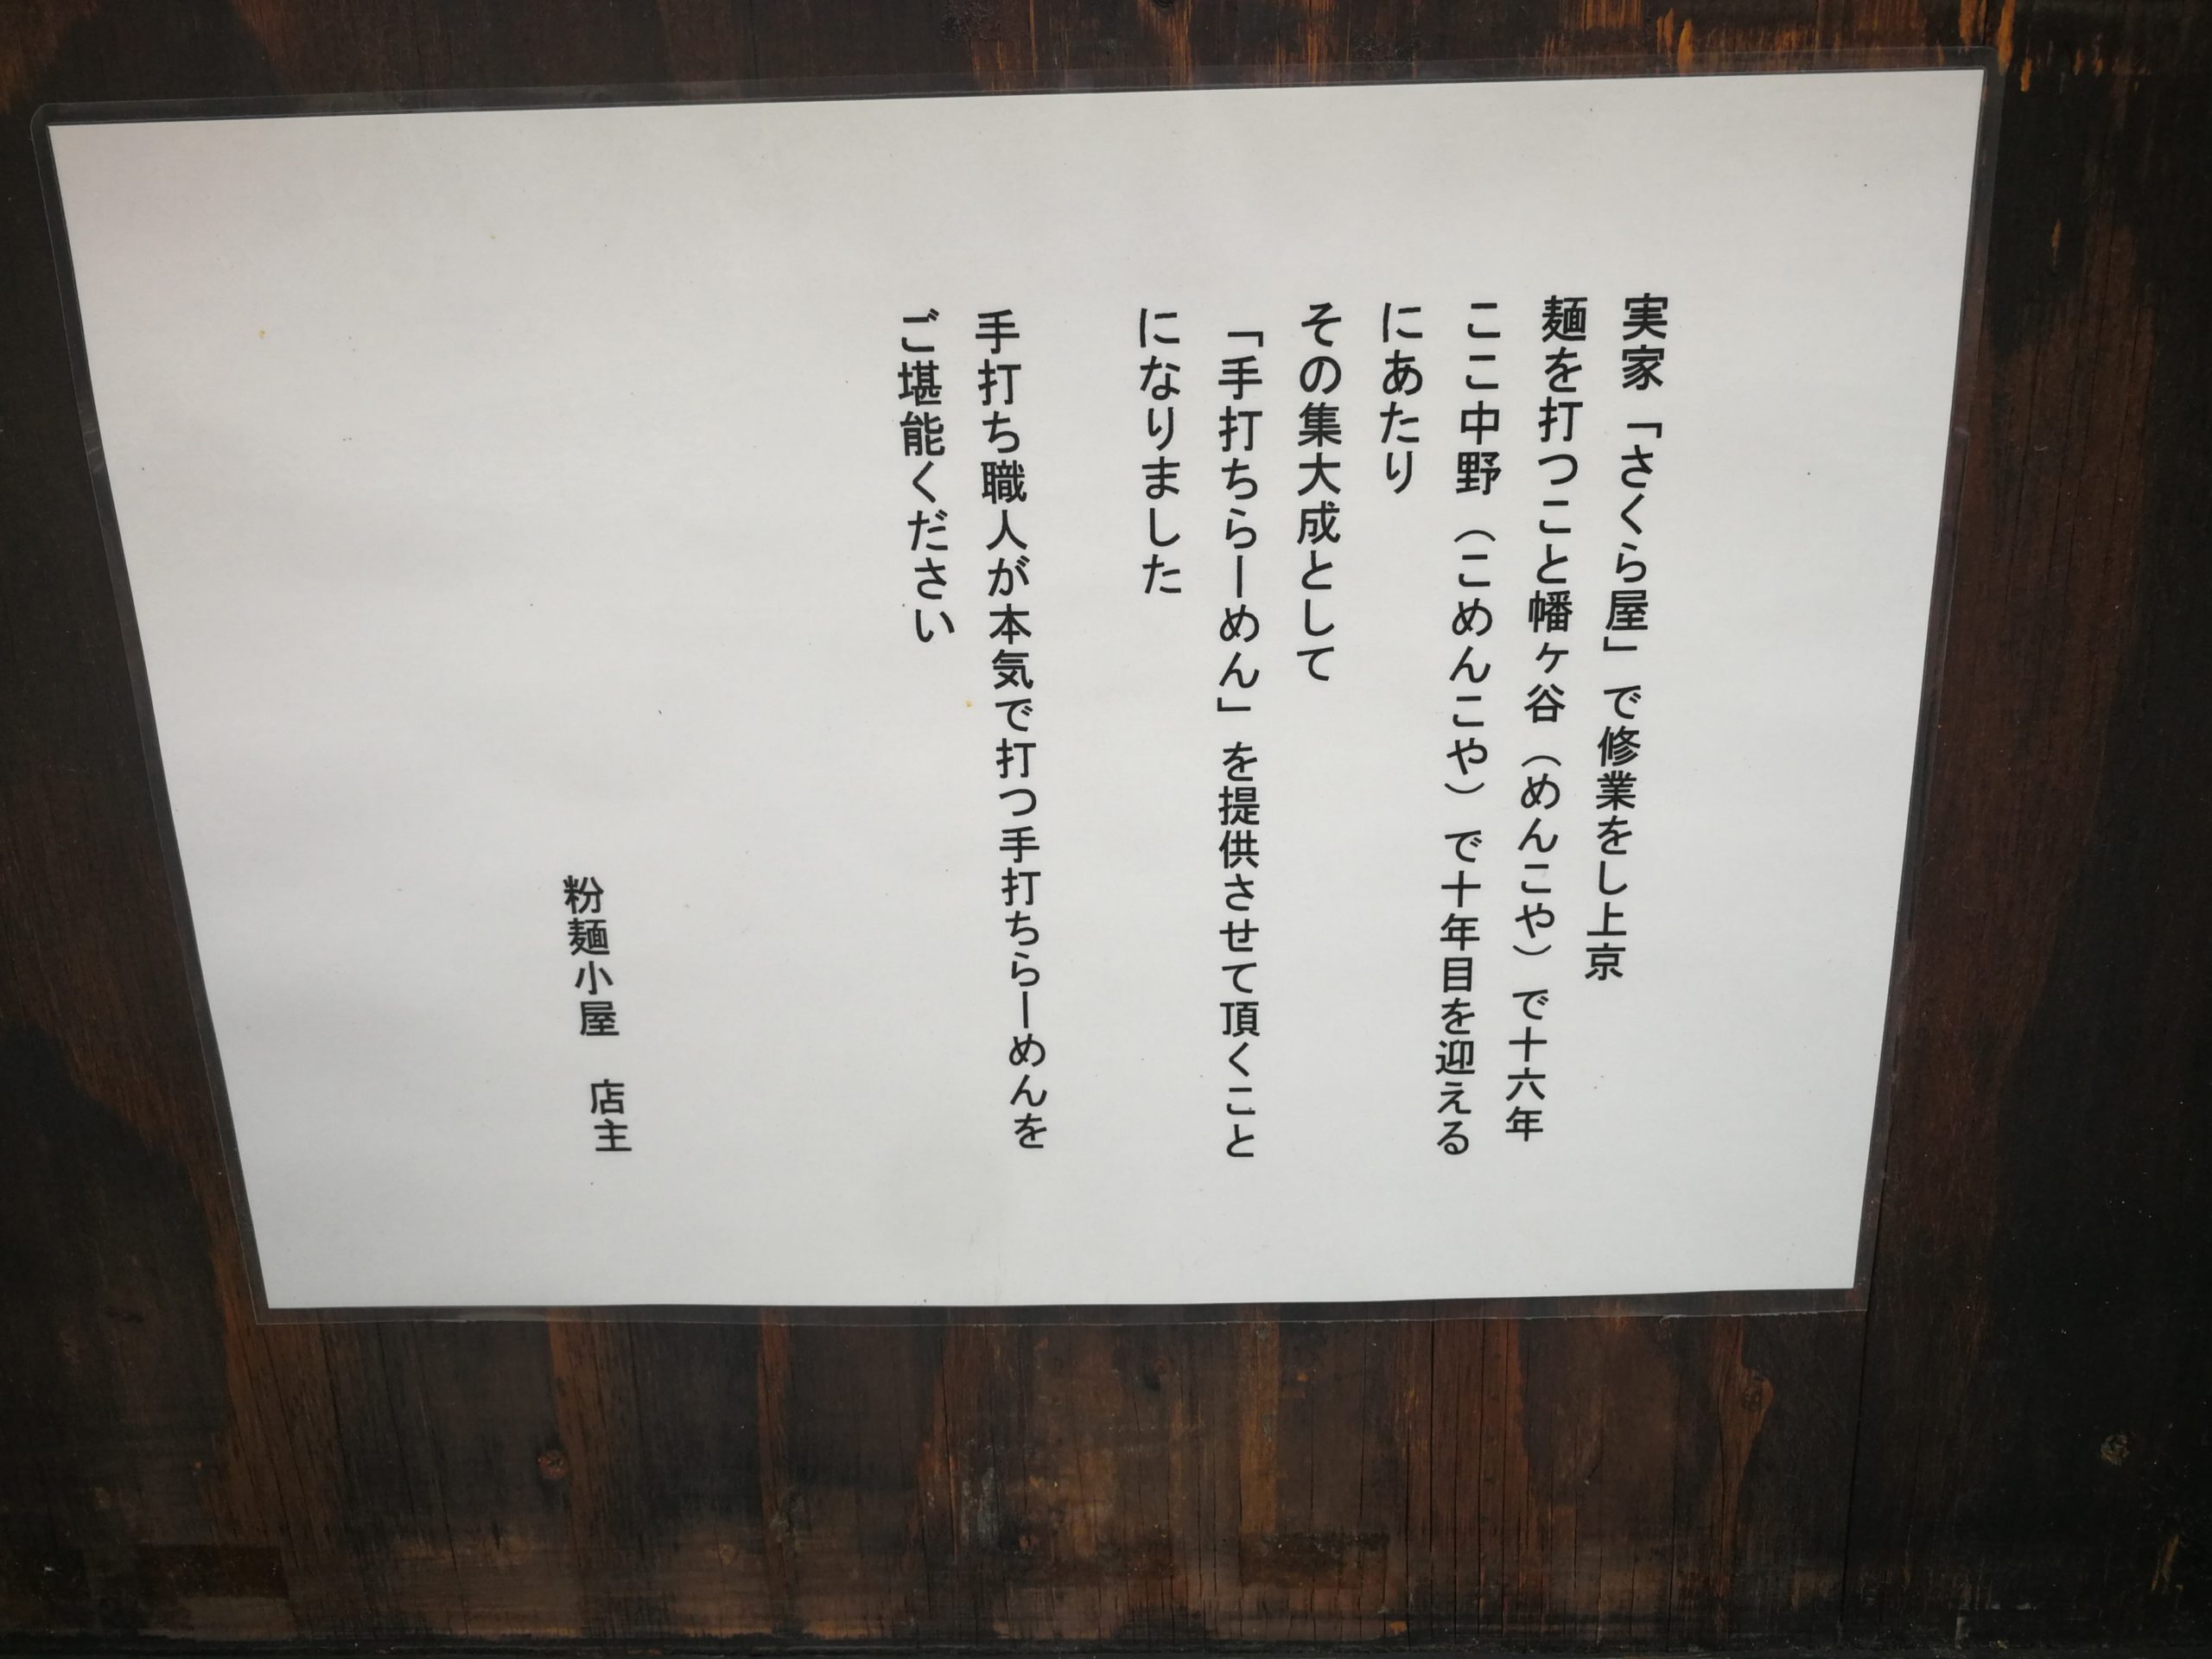 実家「さくら屋」で修業をし上京
麺を打つこと幡ヶ谷（めんこや）で十六年
ここ中野（こめんこや）で十年目を迎える
にあたり
その集大成として
「手打ちらーめん」を提供させて頂くこと
になりました
手打ち職人が本気で打つ手打ちらーめんを
ご堪能ください
粉麺小屋　店主